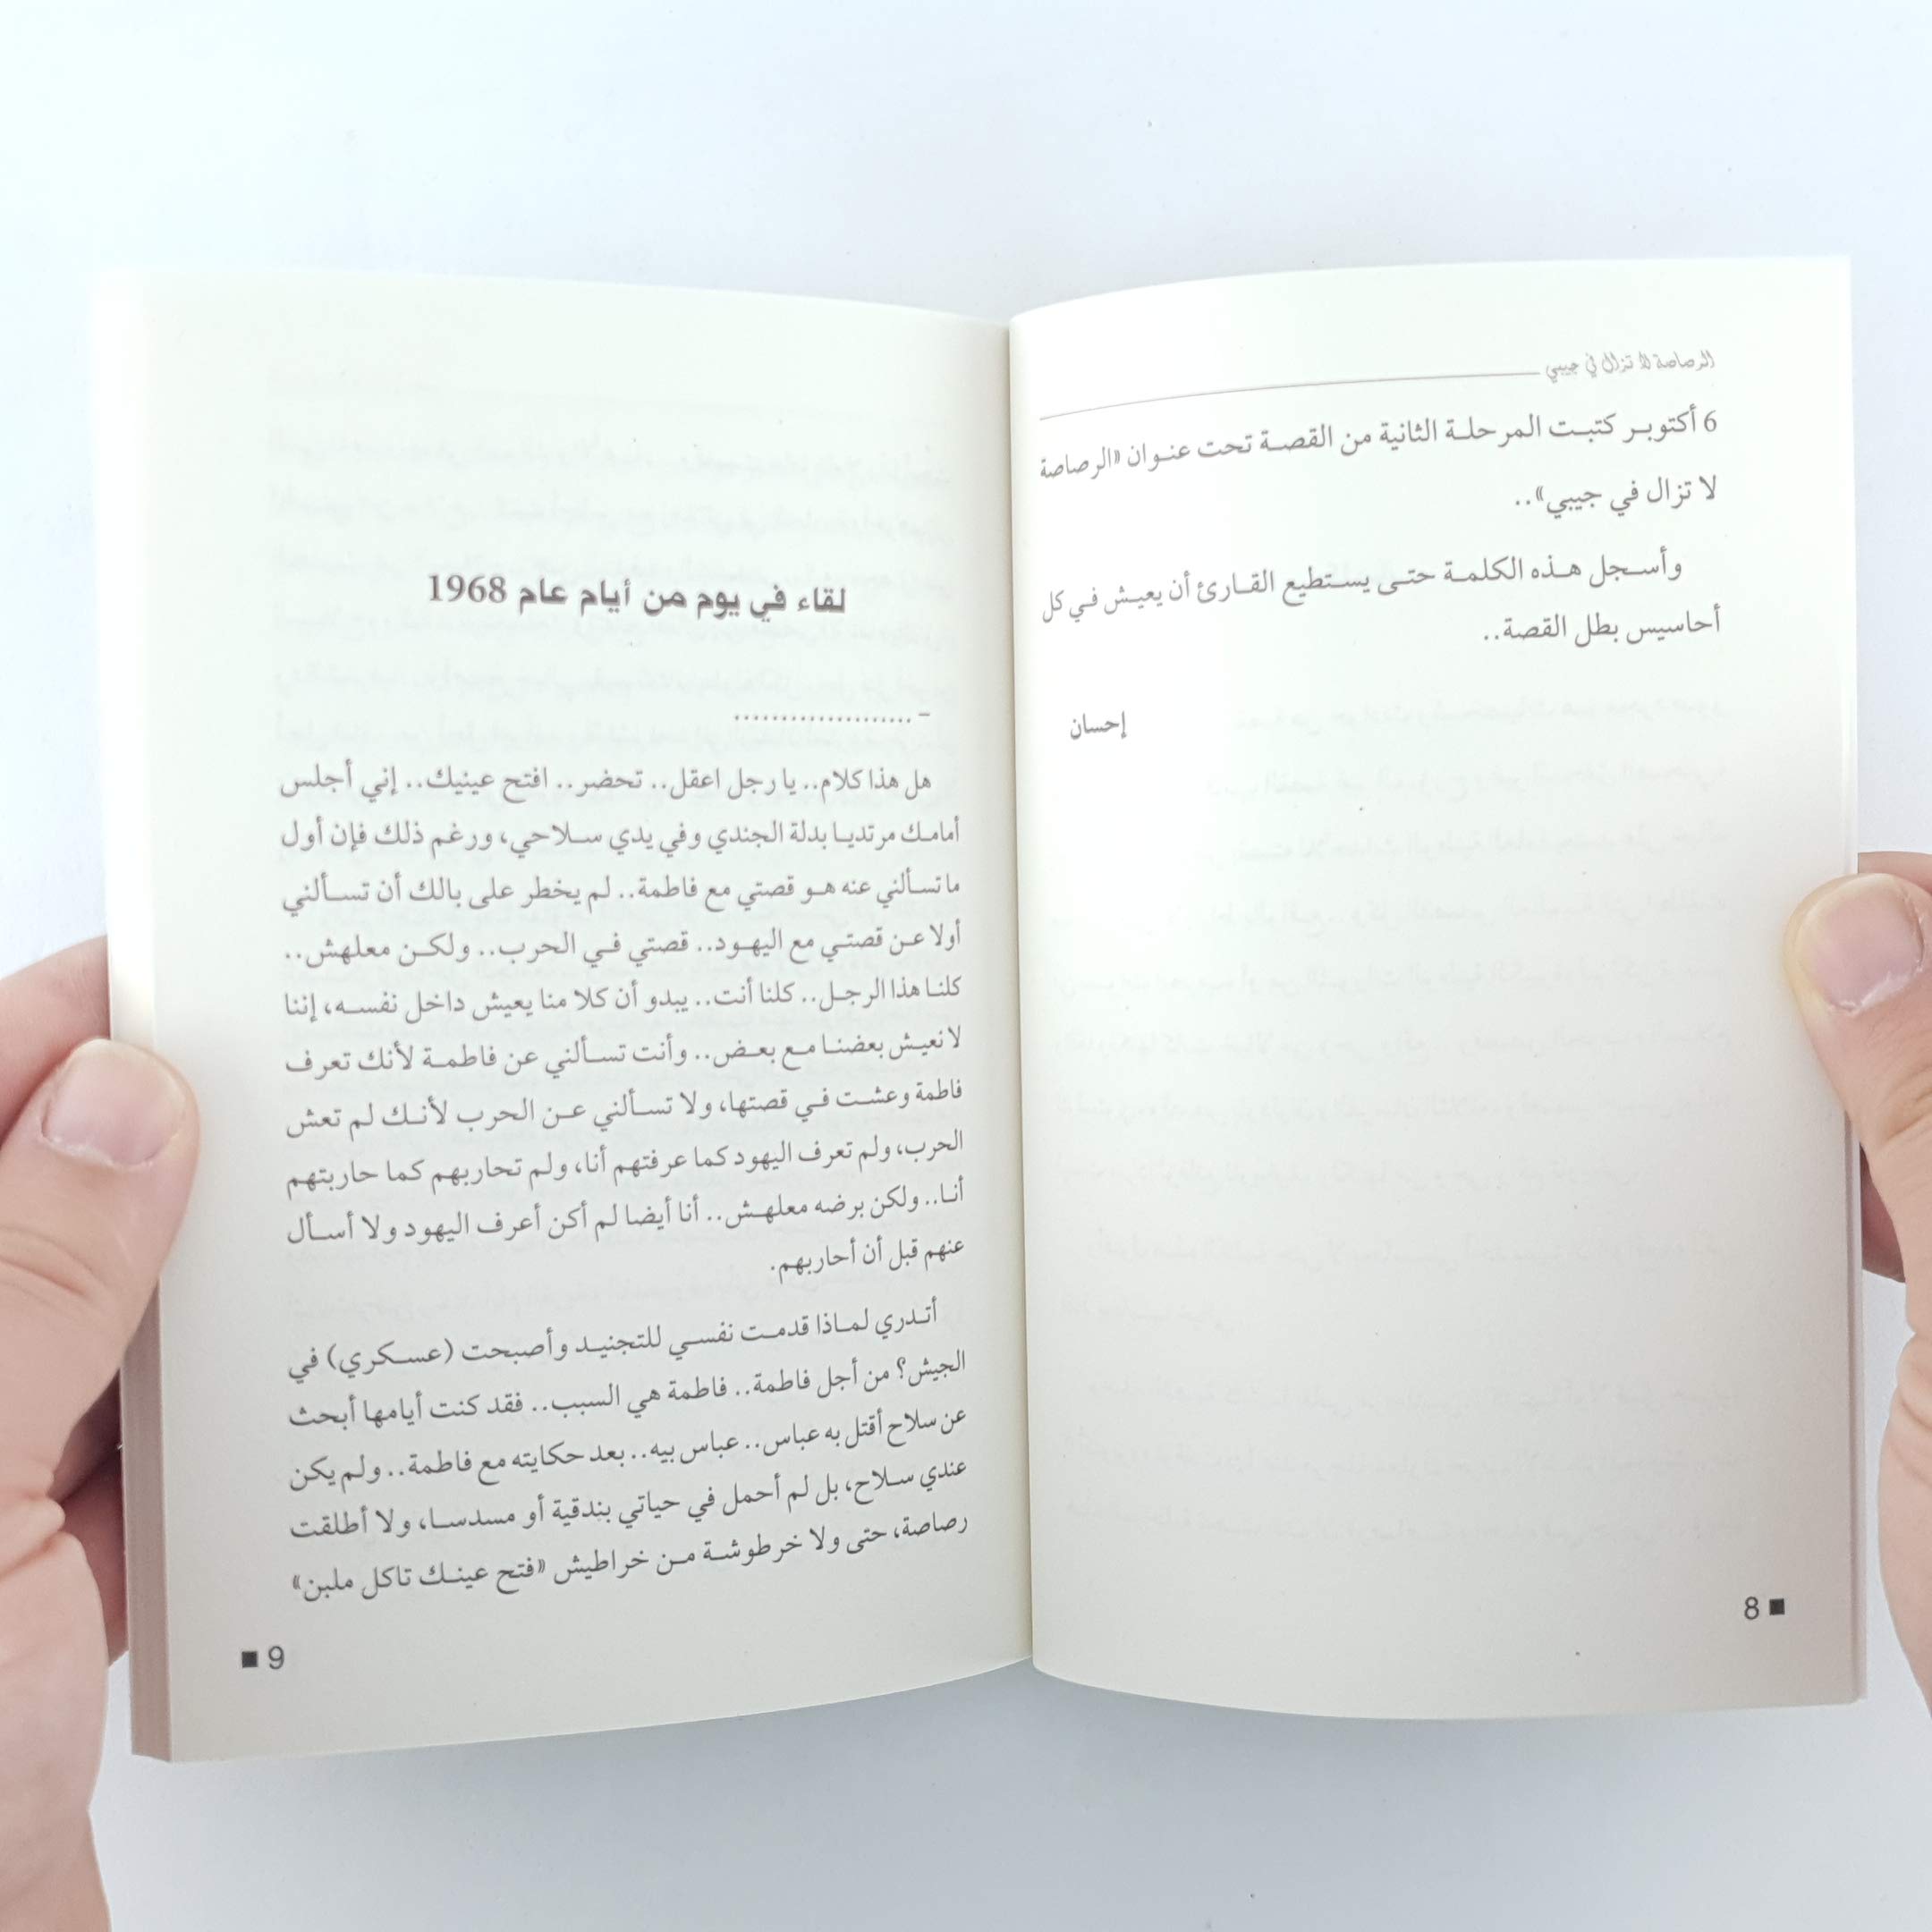 الرصاصة لا تزال في جيبي
6 أكتوبر كتبت المرحلة الثانية من القصة تحت عنوان «الرصاصة
لا تزال في جيبي»..
وأسجل هذه الكلمة حتى يستطيع القارئ أن يعيش في كل
أحاسيس بطل القصة..
إحسان
8
لقاء في يوم من أيام عام 1968
– ....................
هل هذا كلام.. يا رجل اعقل.. تحضر.. افتح عينيك.. إني أجلس
أمامك مرتديا بدلة الجندي وفي يدي سلاحي، ورغم ذلك فإن أول
ما تسألني عنه هو قصتي مع فاطمة.. لم يخطر على بالك أن تسألني
أولا عن قصتي مع اليهود.. قصتي في الحرب.. ولكن معلهش..
كلنا هذا الرجل.. كلنا أنت.. يبدو أن كلا منا يعيش داخل نفسه، إننا
لا نعيش بعضنا مع بعض.. وأنت تسألني عن فاطمة لأنك تعرف
فاطمة وعشت في قصتها، ولا تسألني عن الحرب لأنك لم تعش
الحرب، ولم تعرف اليهود كما عرفتهم أنا، ولم تحاربهم كما حاربتهم
أنا.. ولكن برضه معلهش.. أنا أيضا لم أكن أعرف اليهود ولا أسأل
عنهم قبل أن أحاربهم.
أتدري لماذا قدمت نفسي للتجنيد وأصبحت (عسكري) في
الجيش؟ من أجل فاطمة.. فاطمة هي السبب.. فقد كنت أيامها أبحث
عن سلاح أقتل به عباس.. عباس بيه.. بعد حكايته مع فاطمة.. ولم يكن
عندي سلاح، بل لم أحمل في حياتي بندقية أو مسدسا، ولا أطلقت
رصاصة، حتى ولا خرطوشة من خراطيش «فتح عينك تاكل ملبن»
9